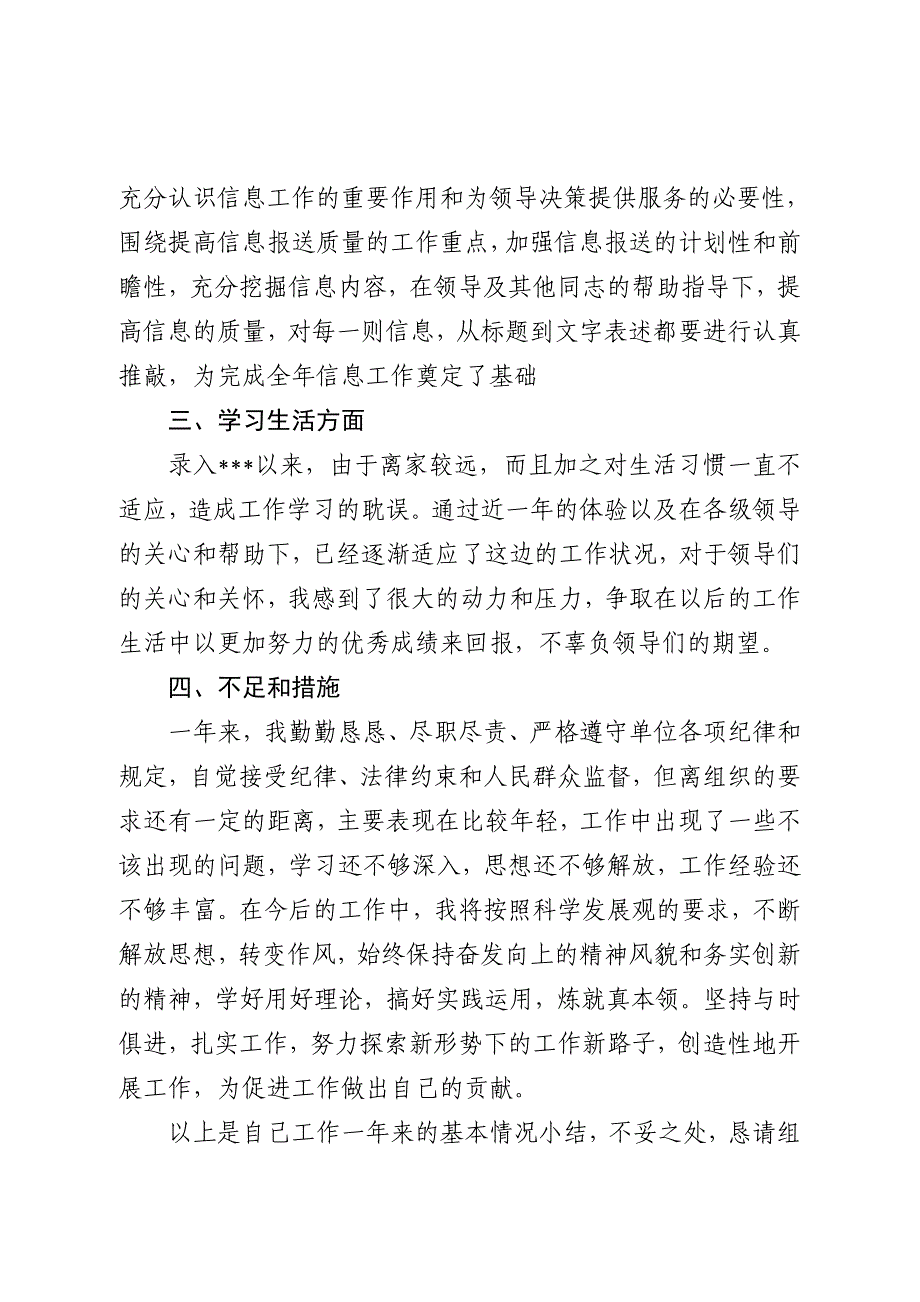 充分认识信息工作的重要作用和为领导决策提供服务的必要性，
围绕提高信息报送质量的工作重点，加强信息报送的计划性和前
瞻性，充分挖掘信息内容，在领导及其他同志的帮助指导下，提
高信息的质量，对每一则信息，从标题到文字表述都要进行认真
推敲，为完成全年信息工作奠定了基础
三、学习生活方面
录入***以来，由于离家较远，而且加之对生活习惯一直不
适应，造成工作学习的耽误。通过近一年的体验以及在各级领导
的关心和帮助下，已经逐渐适应了这边的工作状况，对于领导们
的关心和关怀，我感到了很大的动力和压力，争取在以后的工作
生活中以更加努力的优秀成绩来回报，不辜负领导们的期望。
四、不足和措施
一年来，我勤勤恳恳、尽职尽责、严格遵守单位各项纪律和
规定，自觉接受纪律、法律约束和人民群众监督，但离组织的要
求还有一定的距离，主要表现在比较年轻，工作中出现了一些不
该出现的问题，学习还不够深入，思想还不够解放，工作经验还
不够丰富。在今后的工作中，我将按照科学发展观的要求，不断
解放思想，转变作风，始终保持奋发向上的精神风貌和务实创新
的精神，学好用好理论，搞好实践运用，炼就真本领。坚持与时
俱进，扎实工作，努力探索新形势下的工作新路子，创造性地开
展工作，为促进工作做出自己的贡献。
以上是自己工作一年来的基本情况小结，不妥之处，恳请组